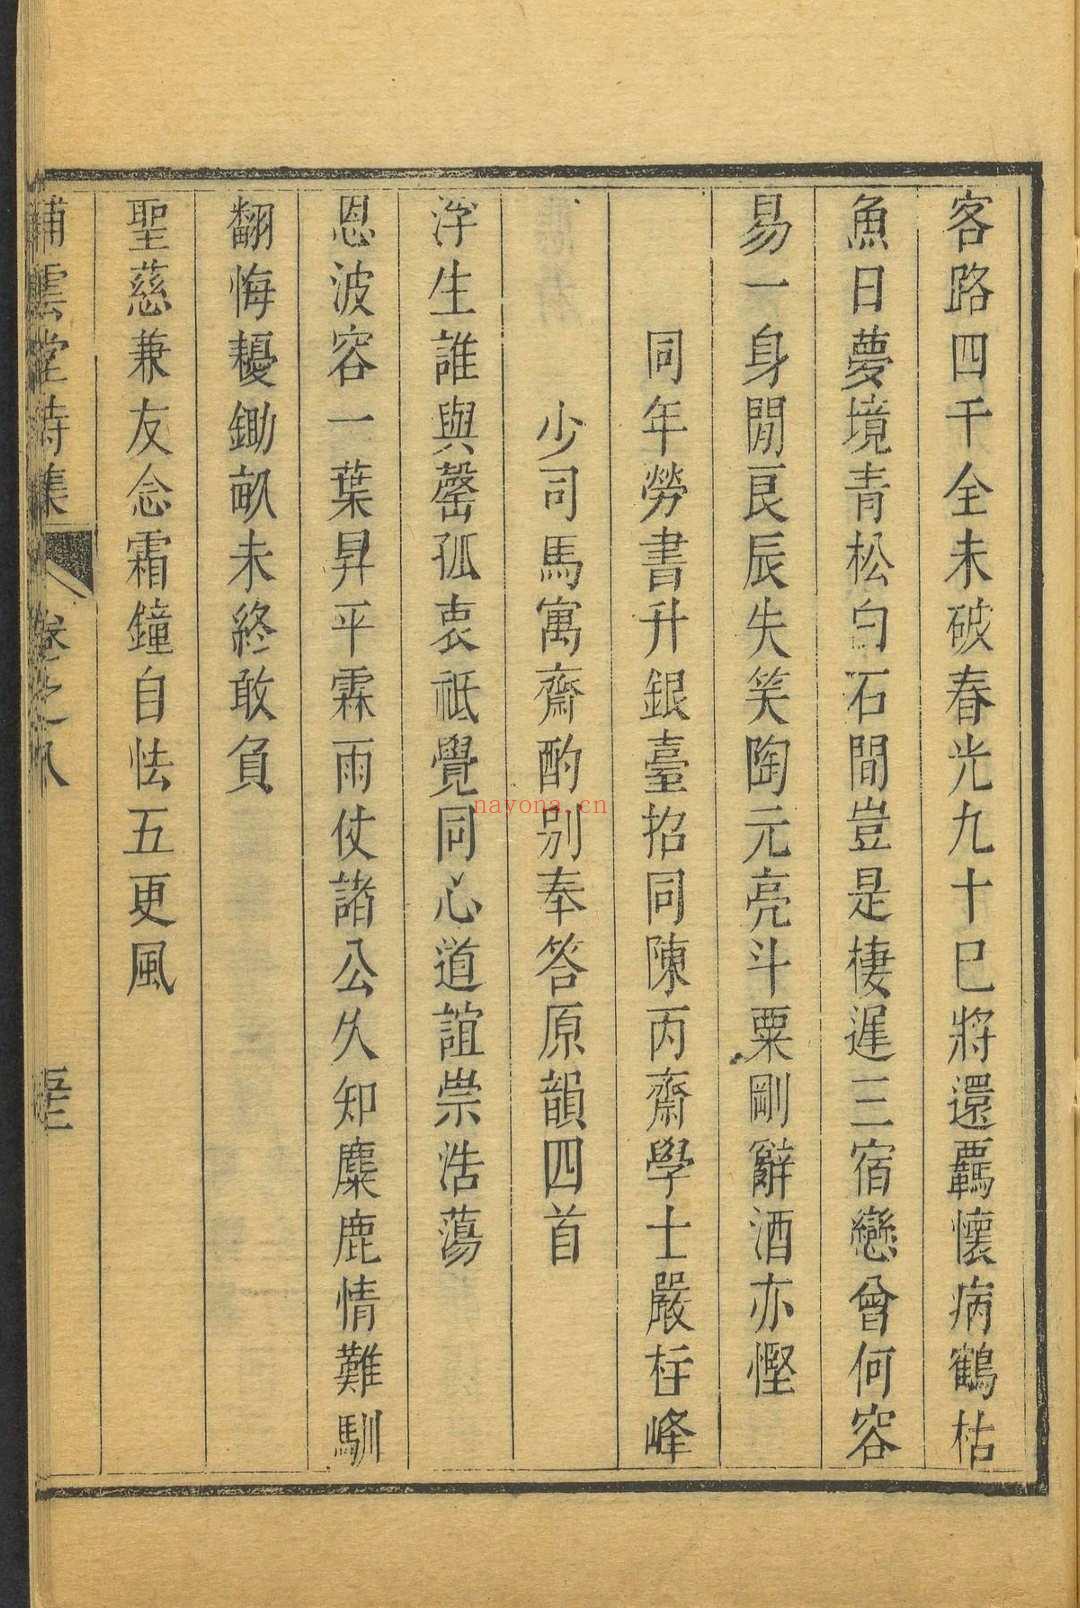 客路四千全未破春光九十巳將還羈懷病鶴枯
魚日夢境青松白石間豈是棲遲三宿戀曾何容
易一身閒良辰失笑陶元亮斗粟剛辭酒亦慳
同年勞書升銀臺招同陳丙齋學士嚴存峰
少司馬寓齋酌别奉答原韻四首
浮生誰與罄孤衷祗覺同心道誼崇浩蕩
恩波容一葉昇平霖雨仗諸公久知麋鹿情難馴
翻悔耰鋤畝未終敢負
聖慈兼友念霜鐘自怯五更風
補雲堂詩集
卷之八
nayona.cn